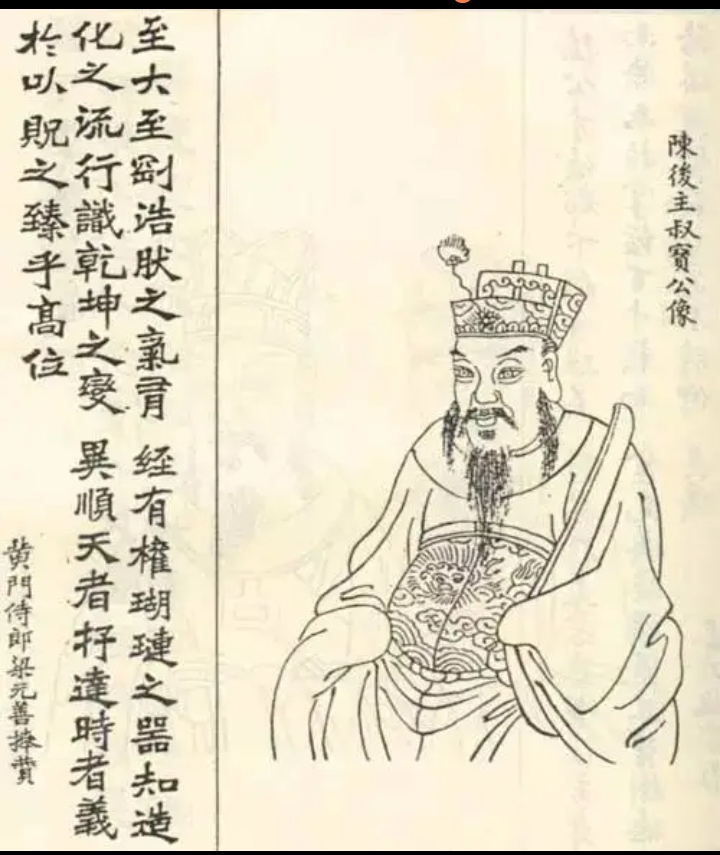 陳後主叔寶公像
至大至剛浩肰之氣經有權瑚璉之器知造
化之流行識乾坤之變異順天者達時者義
於以貺之臻乎高位
黄門侍郎梁元善拜贊